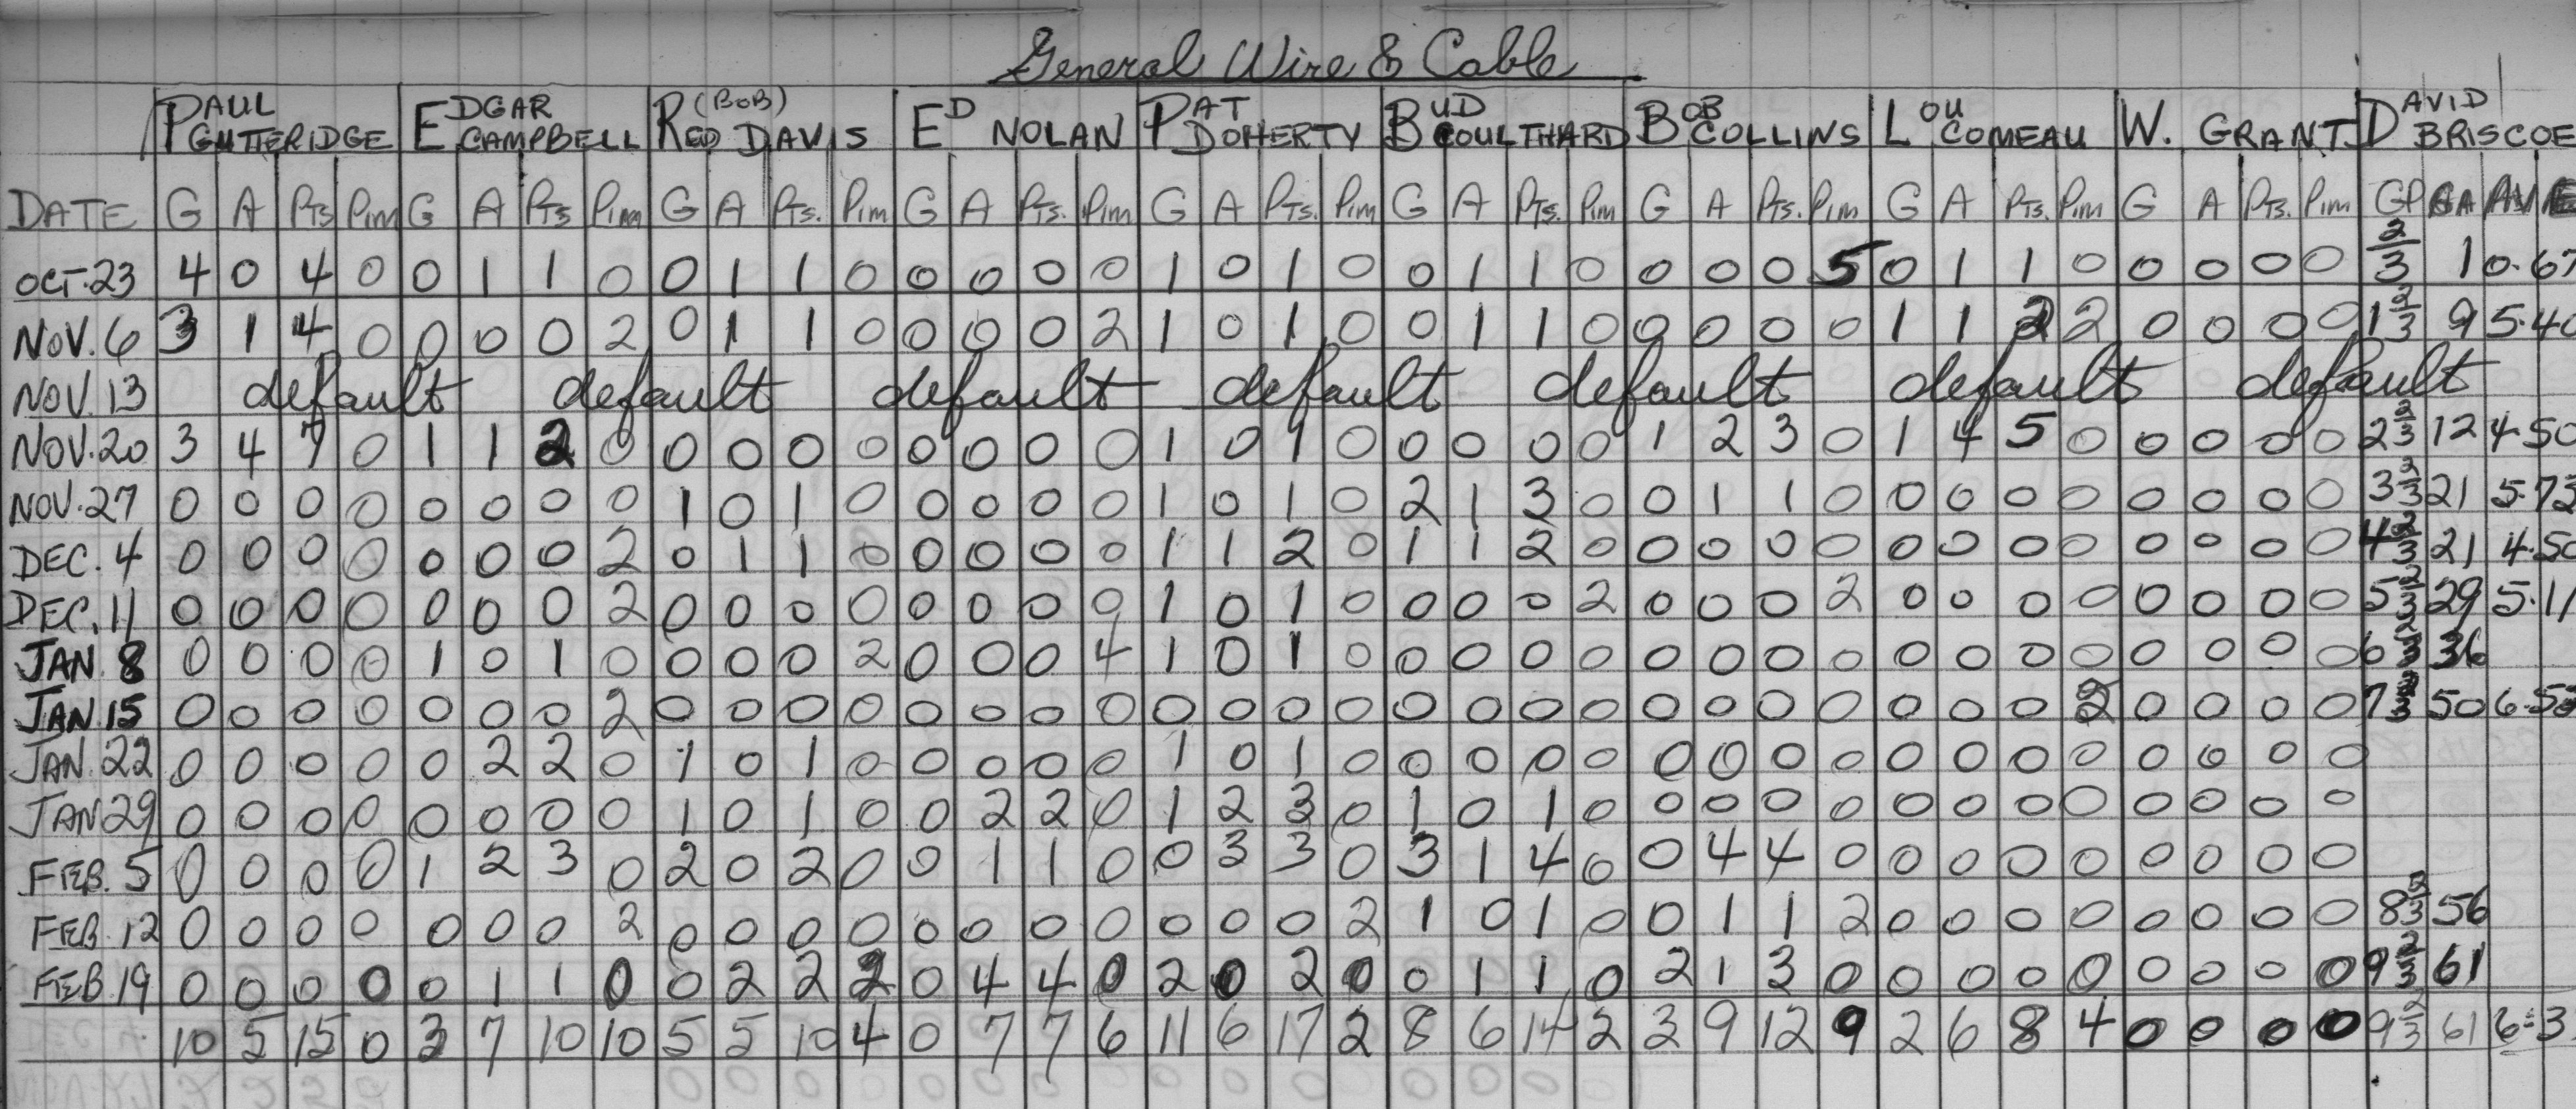 General Wire & Cable
PAUL GUTTERIDGE EDGAR CAMPBELL RED (BOB) DAVIS ED NOLAN PAT DOHERTY BUD COULTHARD BOB COLLINS LOU COMEAU W. GRANT DAVID BRISCOE
DATE G A Pts Pim G A Pts Pim G A Pts. Pim G A Pts. Pim G A Pts. Pim G A Pts. Pim G A Pts. Pim G A Pts. Pim G A Pts. Pim GP GA AVE
OCT. 23 4 0 4 0 0 1 1 0 0 1 1 0 0 0 0 0 1 0 1 0 0 1 1 0 0 0 0 5 0 1 1 0 0 0 0 0 2/3 1 0.67
NOV. 6 3 1 4 0 0 0 0 2 0 1 1 0 0 0 0 2 1 0 1 0 0 1 1 0 0 0 0 0 1 1 2 2 0 0 0 0 1 2/3 9 5.40
NOV. 13 default default default default default default default
NOV. 20 3 4 7 0 1 1 2 0 0 0 0 0 0 0 0 0 1 0 1 0 0 0 0 0 1 2 3 0 1 4 5 0 0 0 0 0 2 2/3 12 4.50
NOV. 27 0 0 0 0 0 0 0 0 1 0 1 0 0 0 0 0 1 0 1 0 2 1 3 0 0 1 1 0 0 0 0 0 0 0 0 0 3 2/3 21 5.73
DEC. 4 0 0 0 0 0 0 0 2 0 1 1 0 0 0 0 0 1 1 2 0 1 1 2 0 0 0 0 0 0 0 0 0 0 0 0 0 4 2/3 21 4.50
DEC. 11 0 0 0 0 0 0 0 2 0 0 0 0 0 0 0 0 1 0 1 0 0 0 0 2 0 0 0 2 0 0 0 0 0 0 0 0 5 2/3 29 5.11
JAN. 8 0 0 0 0 1 0 1 0 0 0 0 2 0 0 0 4 1 0 1 0 0 0 0 0 0 0 0 0 0 0 0 0 0 0 0 0 6 2/3 36
JAN. 15 0 0 0 0 0 0 0 2 0 0 0 0 0 0 0 0 0 0 0 0 0 0 0 0 0 0 0 0 0 0 0 2 0 0 0 0 7 2/3 50
JAN. 22 0 0 0 0 0 2 2 0 1 0 1 0 0 0 0 0 1 0 1 0 0 0 0 0 0 0 0 0 0 0 0 0 0 0 0 0
JAN 29 0 0 0 0 0 0 0 0 1 0 1 0 0 2 2 0 1 2 3 0 1 0 1 0 0 0 0 0 0 0 0 0 0 0 0 0
FEB. 5 0 0 0 0 1 2 3 0 2 0 2 0 0 1 1 0 0 3 3 0 3 1 4 0 0 4 4 0 0 0 0 0 0 0 0 0
FEB. 12 0 0 0 0 0 0 0 2 0 0 0 0 0 0 0 0 0 0 0 2 1 0 1 0 0 1 1 2 0 0 0 0 0 0 0 0 8 2/3 56
FEB. 19 0 0 0 0 0 1 1 0 0 2 2 2 0 4 4 0 2 0 2 0 0 1 1 0 2 1 3 0 0 0 0 0 0 0 0 0 9 2/3 61
10 5 15 0 3 7 10 10 5 5 10 4 0 7 7 6 11 6 17 2 8 6 14 2 3 9 12 9 2 6 8 4 0 0 0 0 9 2/3 61